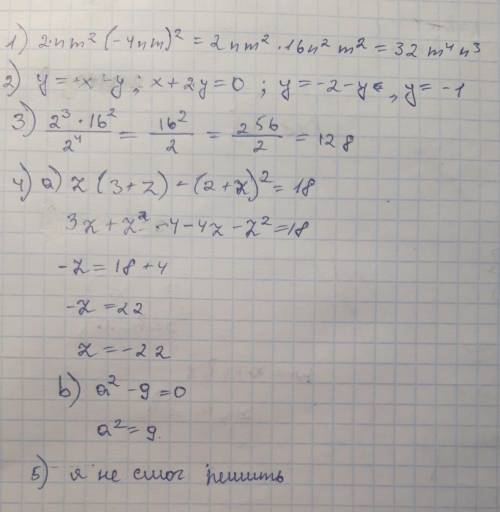 1) 2·nm² (-4nm)² = 2nm² · 16n² m² = 32 m⁴ n³
2) y = -x-y ; x + 2y = 0 ; y = -2 - y , y = -1
3) 2³ · 16² / 2⁴ = 16² / 2 = 256 / 2 = 128
4) a) z (3+z) - (2+z)² = 18
3z + z² - 4 - 4z - z² = 18
-z = 18 + 4
-z = 22
z = -22
b) a² - 9 = 0
a² = 9.
5) я не смог решить